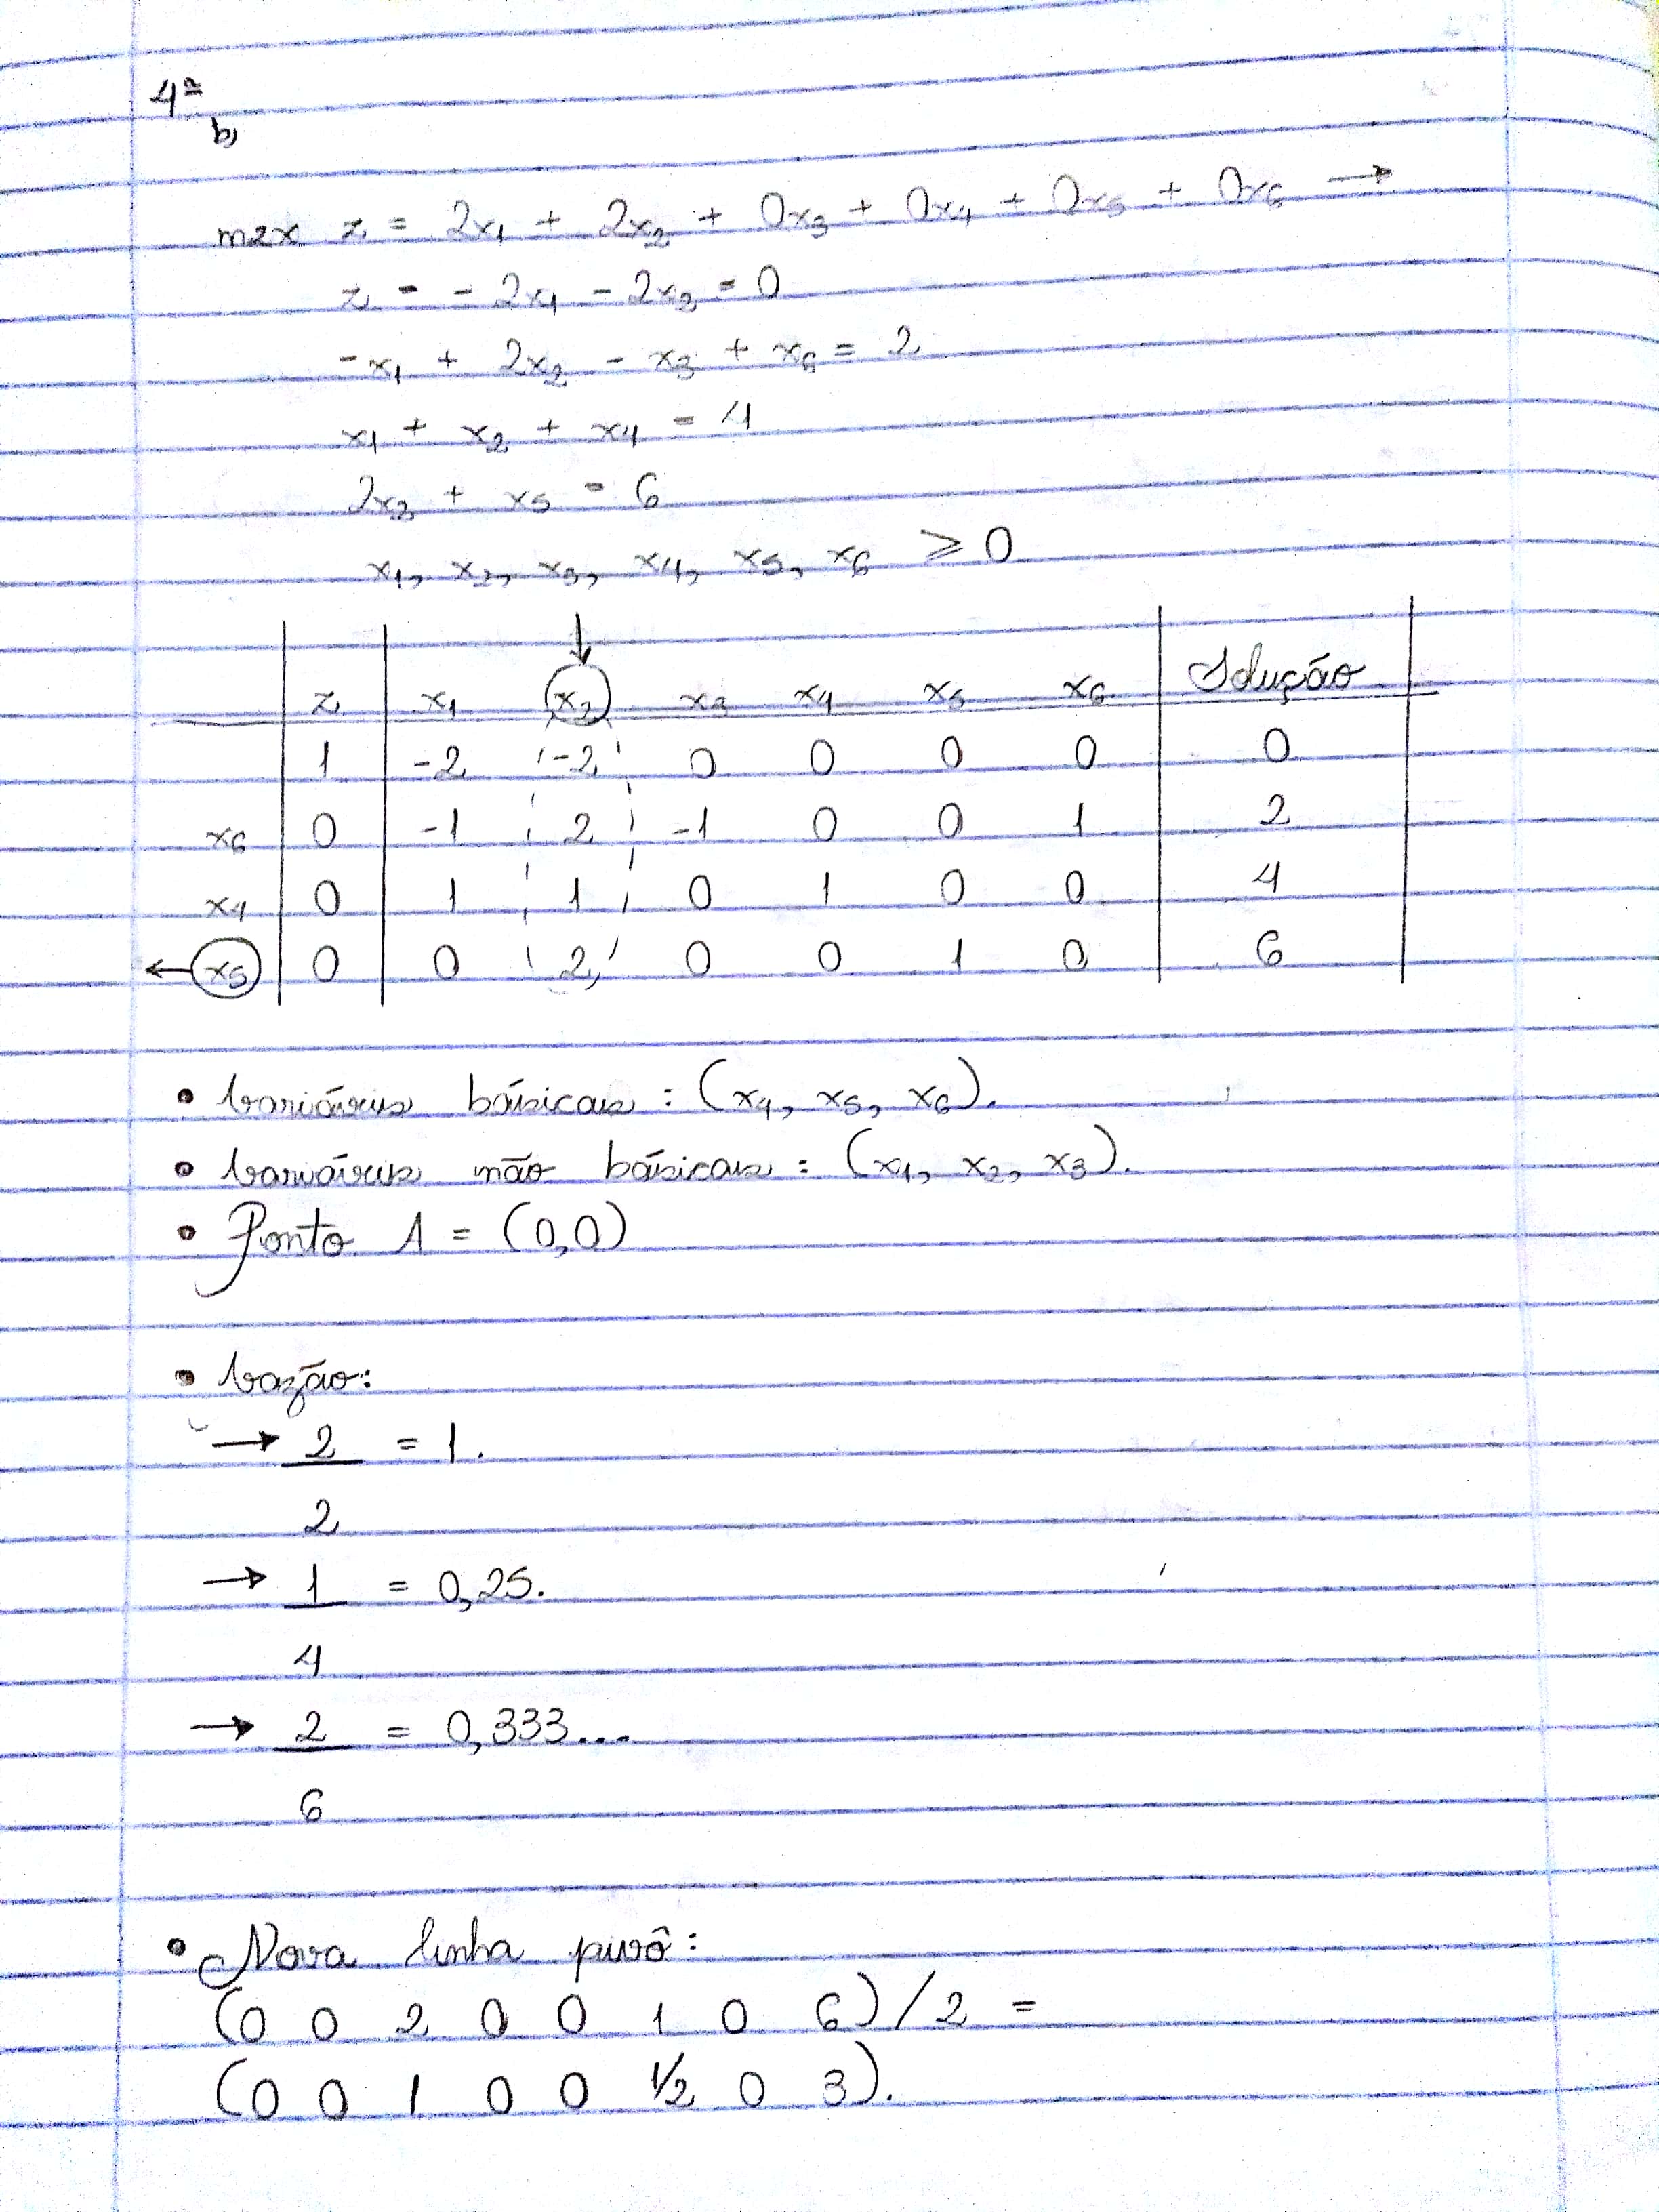 4ª
b)
max z = 2x1 + 2x2 + 0x3 + 0x4 + 0x5 + 0x6 →
z = - 2x1 - 2x2 = 0
-x1 + 2x2 - x3 + x6 = 2
x1 + x2 + x4 = 4
2x2 + x5 = 6
x1, x2, x3, x4, x5, x6 ≥ 0
z x1 x2 x3 x4 x5 x6 Solução
1 -2 -2 0 0 0 0 0
x6 0 -1 2 -1 0 0 1 2
x4 0 1 1 0 1 0 0 4
← x5 0 0 2 0 0 1 0 6
• Variáveis básicas: (x4, x5, x6).
• Variáveis não básicas: (x1, x2, x3).
• Ponto A = (0,0)
• Vazão:
→ 2 = 1.
2
→ 1 = 0,25.
4
→ 2 = 0,333...
6
• Nova linha pivô:
(0 0 2 0 0 1 0 6)/2 =
(0 0 1 0 0 1/2 0 3).